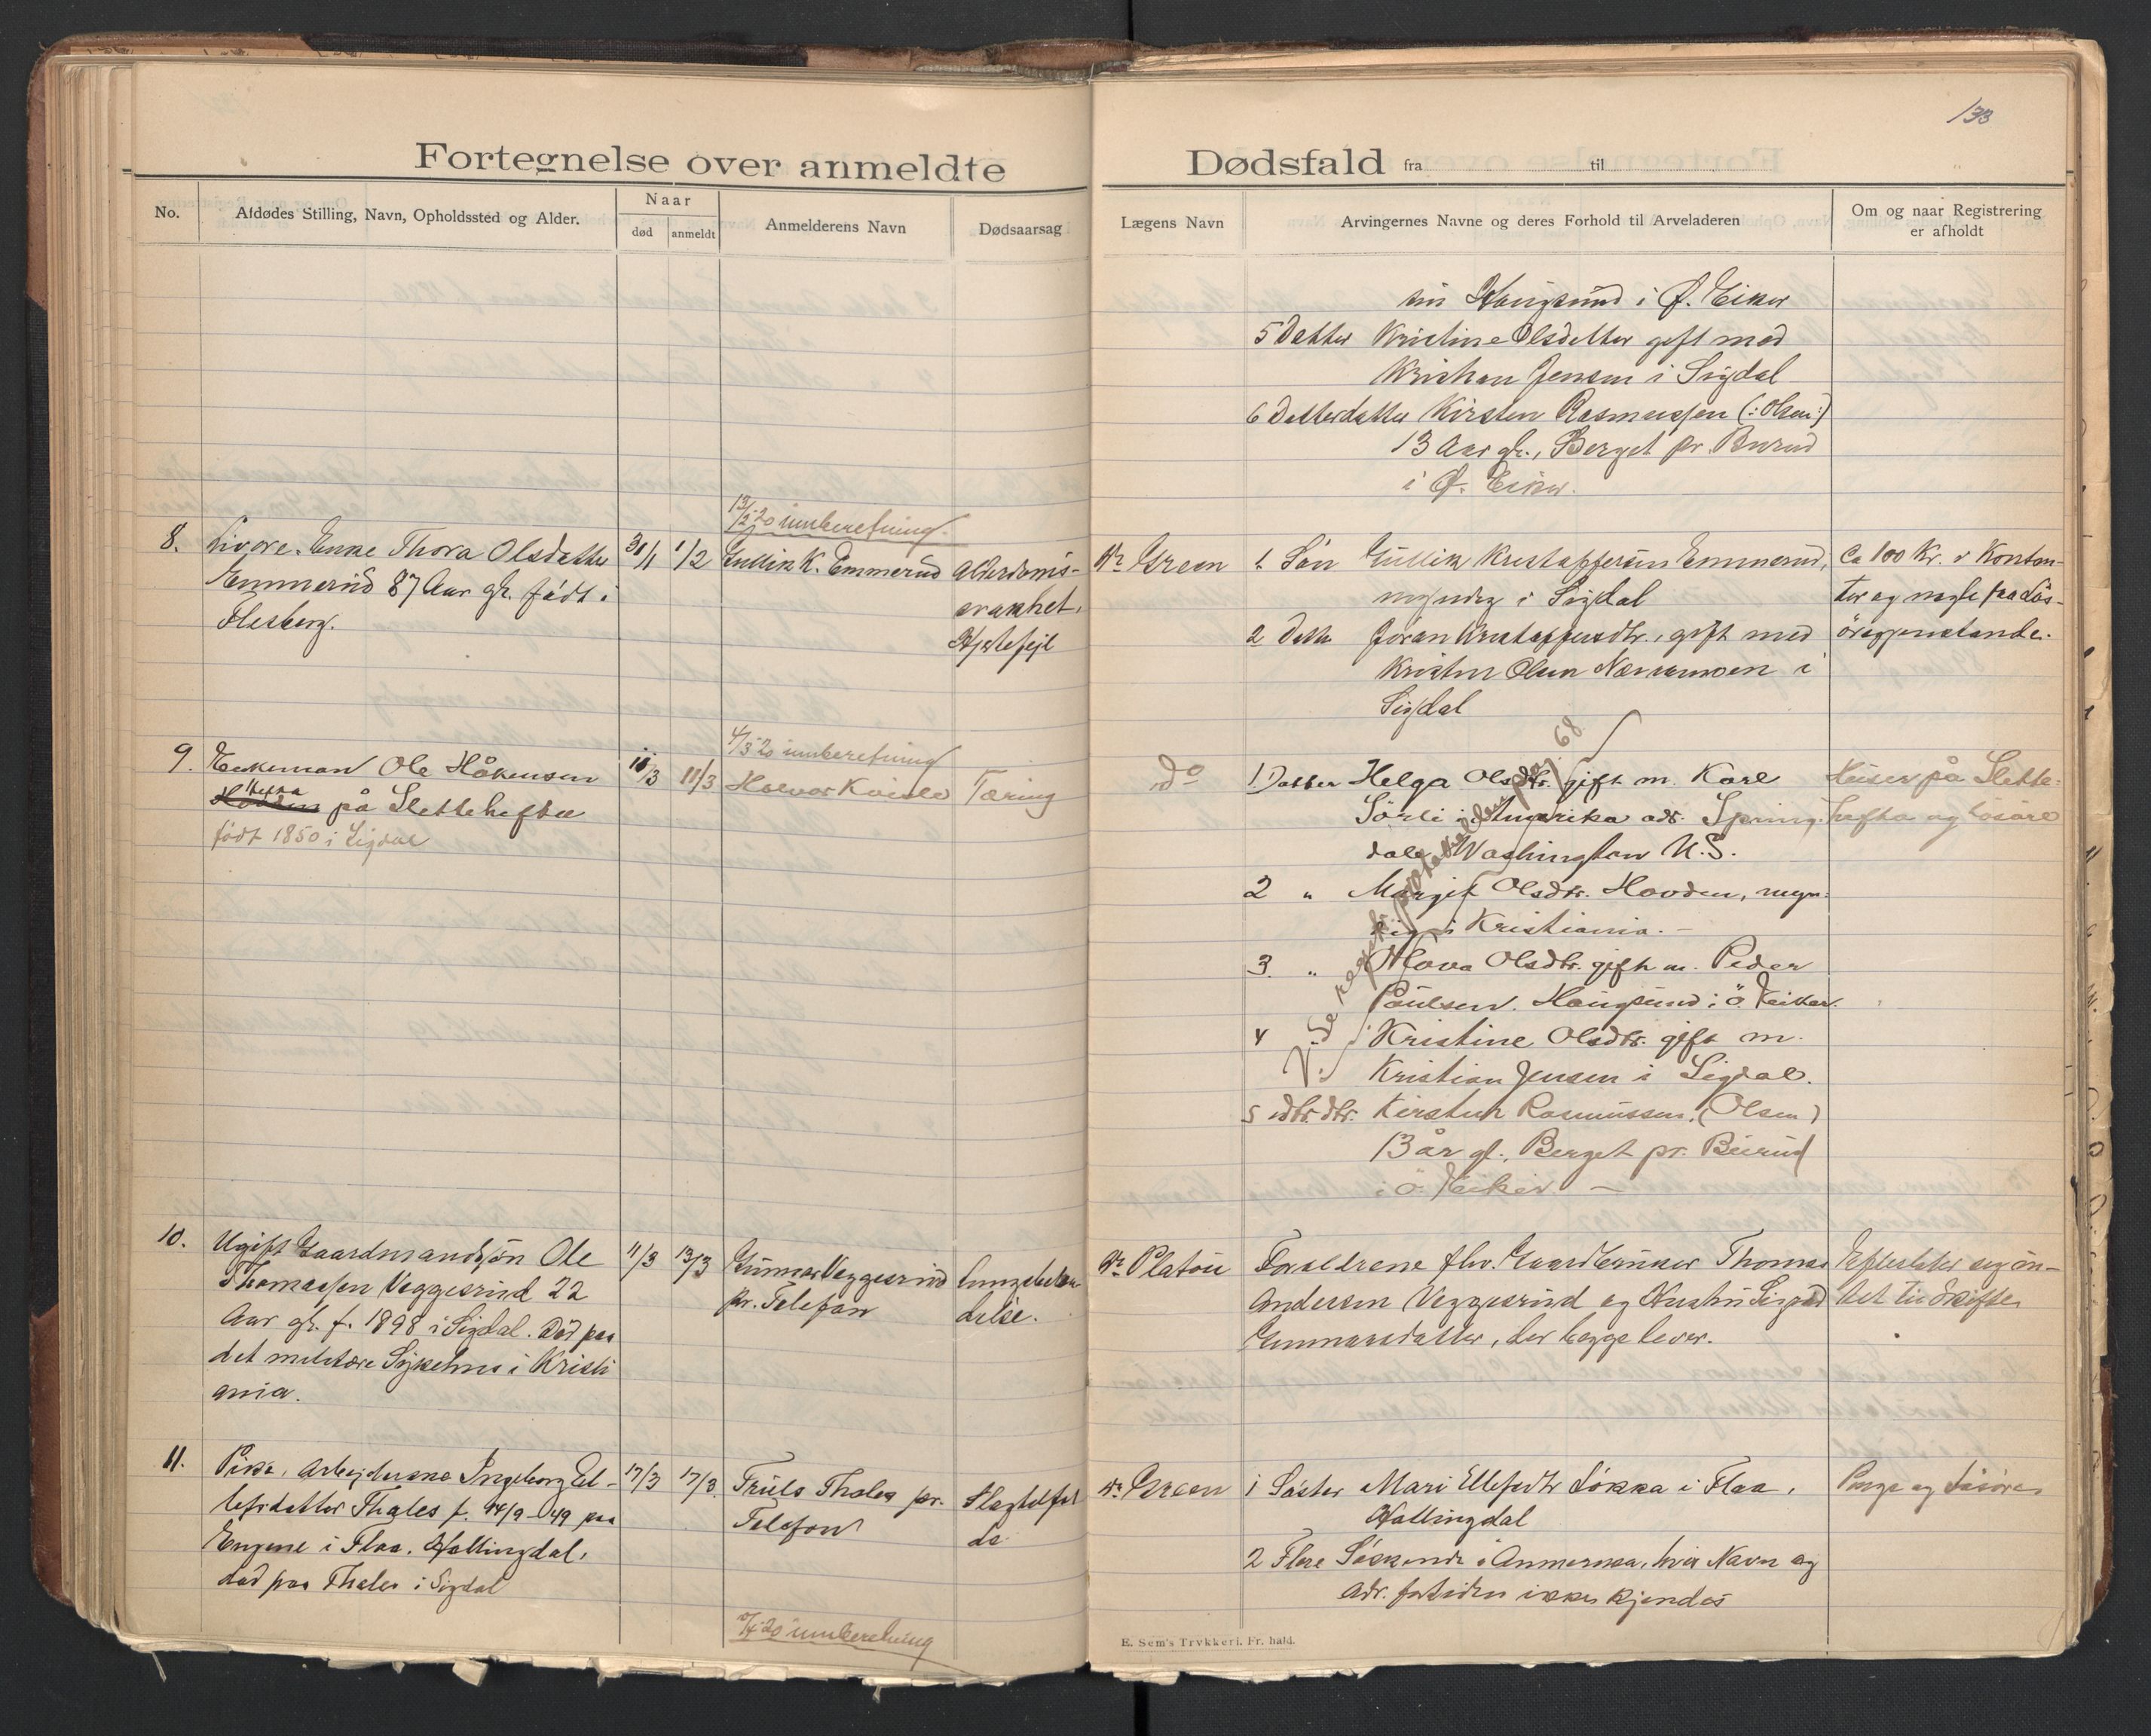 133
Fortegnelse over anmeldte Dødsfald fra til
No.
Afdødes Stilling, Navn, Opholdssted og Alder.
Naar
død
anmeldt
Anmelderens Navn
Dødsaarsag
Lægens Navn
Arvingernes Navne og deres Forhold til Arveladeren
Om og naar Registrering
er afholdt
Haugsund i Ø. Eiker
5 Datter Kristine Olsdatter gift med
Kristian Jensen i Sigdal
6 Datterdatter Kirsten Rasmussen (: Olsen :)
13 Aar gl., Berget pr. Burud
i Ø. Eiker.
13/2 20 innberetning.
8.
Enke Thora Olsdatter
Emmerud 87 Aar gl. født i
Flesberg.
31/1
1/2
Gullik K. Emmerud
Alderdoms-
svakhet.
Hjertefejl
Dr Green
1. Søn Gullik Kristoffersen Emmerud,
myndig i Sigdal
2 Datter Jøran Kristoffersdtr., gift med
Kristen Olsen Nærumoen i
Sigdal
Ca 100 Kr. i Kontan-
ter og nogle faa Løs-
øregjenstande.
4/5 20 innberetning
9.
Enkeman Ole Håkensen
Hovden på Slettehefta
født 1850 i Sigdal
10/3
11/3
Halvor Kvisle
Tæring
do
1. Datter Helga Olsdtr. gift m. Karl
Sørli i Amerika adr. Spring-
dale Washington U.S.
2 " Margit Olsdtr. Hovden, myn-
dig i Kristiania. -
3. " Olava Olsdtr. gift m. Peder
Paulsen. Haugsund i Ö. Eiker.
4 Kristine Olsdtr. gift m.
Kristian Jensen i Sigdal.
5 dtr.dtr. Kirsten Rasmussen, (Olsen)
13 år gl., Berget pr. Burud
i Ö. Eiker -
Huser på Slette-
hefta og løsøre
10.
Ugift Gaardmandssøn Ole
Thomassen Veggesrud 22
Aar gl. f. 1898 i Sigdal. Død paa
det militære Sykehus i Kristi
ania.
11/3
13/3
Gunnar Veggesrud
pr. Telefon
Lungebeten-
delse.
Dr Platou
Forældrene fhv. Gaardbruker Thomas
Andersen Veggesrud og Hustru Sigrid
Gunnarsdatter, der begge lever.
Efterlater seg in-
tet til Skifte
11.
Pike, Arbejderske Ingeborg El-
lefsdatter Thales f. 14/9-49 paa
Engene i Flaa. Hallingdal,
død paa Thales i Sigdal
17/3
17/3.
Truls Thales pr.
Telefon
Slagtilfæl
de
Dr Green
1 Søster Mari Ellefsdtr Løkka i Flaa,
Hallingdal
2 Flere Søskende i Amerika, hvis Navn og
Adr. fortiden ikke kjendes
Penge og Løsøre
innberetning
E. Sem's Trykkeri. Fr. hald.